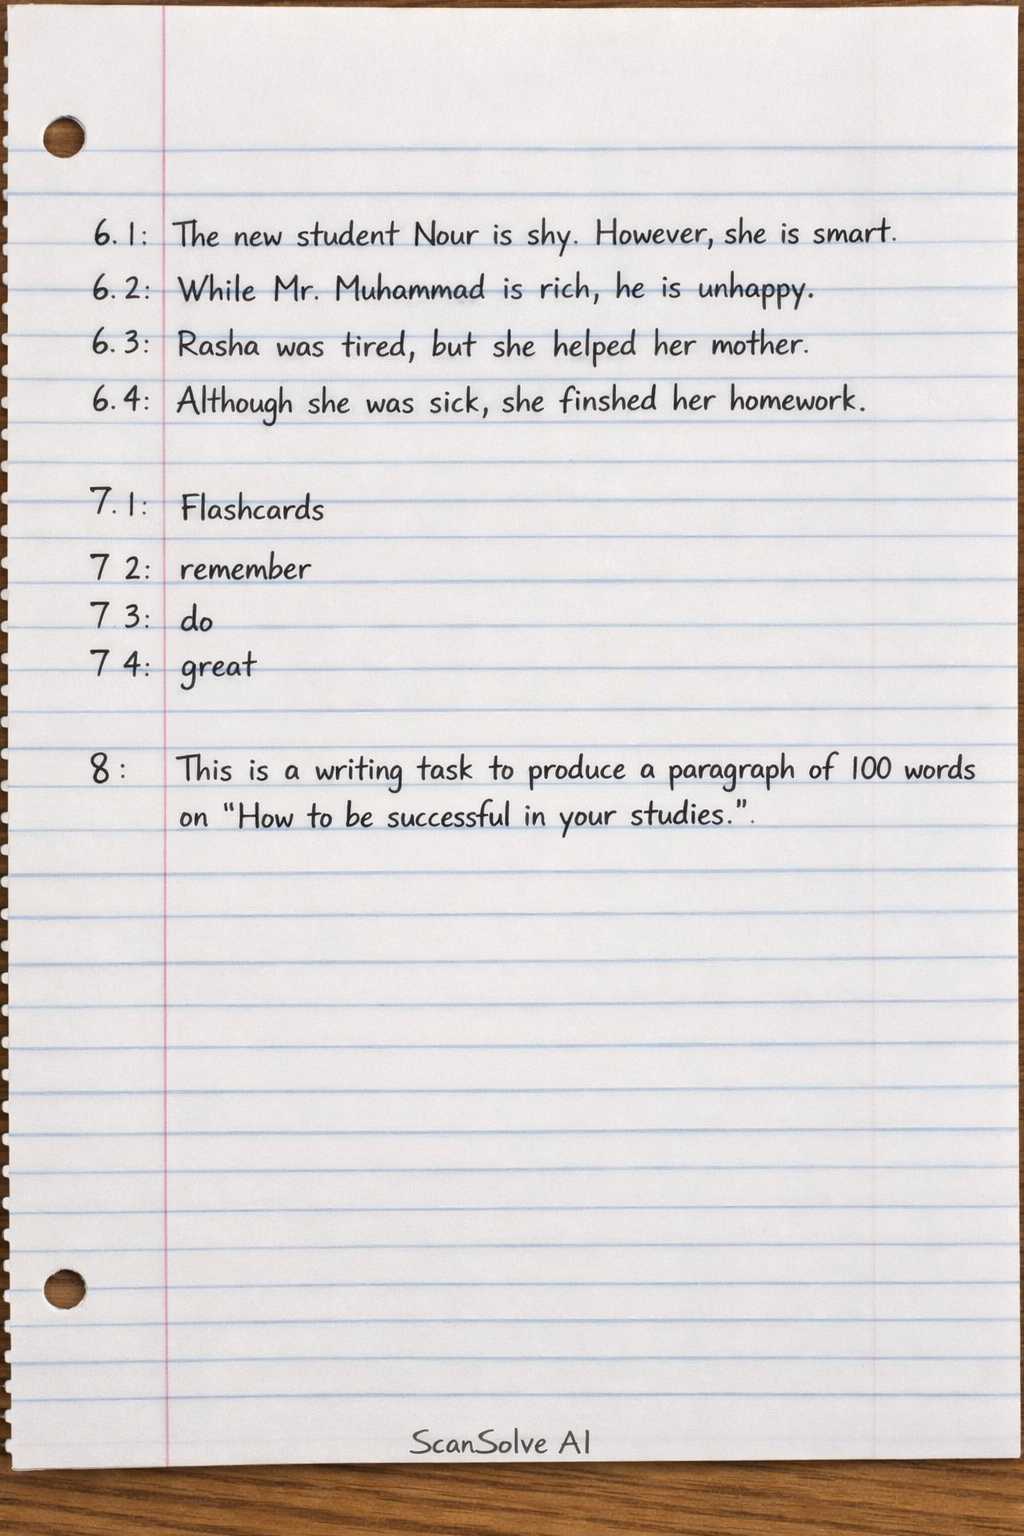 6.1: The new student Nour is shy. However, she is smart.
6.2: While Mr. Muhammad is rich, he is unhappy.
6.3: Rasha was tired, but she helped her mother.
6.4: Although she was sick, she finshed her homework.
7.1: Flashcards
7 2: remember
7 3: do
7 4: great
8: This is a writing task to produce a paragraph of 100 words
on "How to be successful in your studies.".
ScanSolve AI